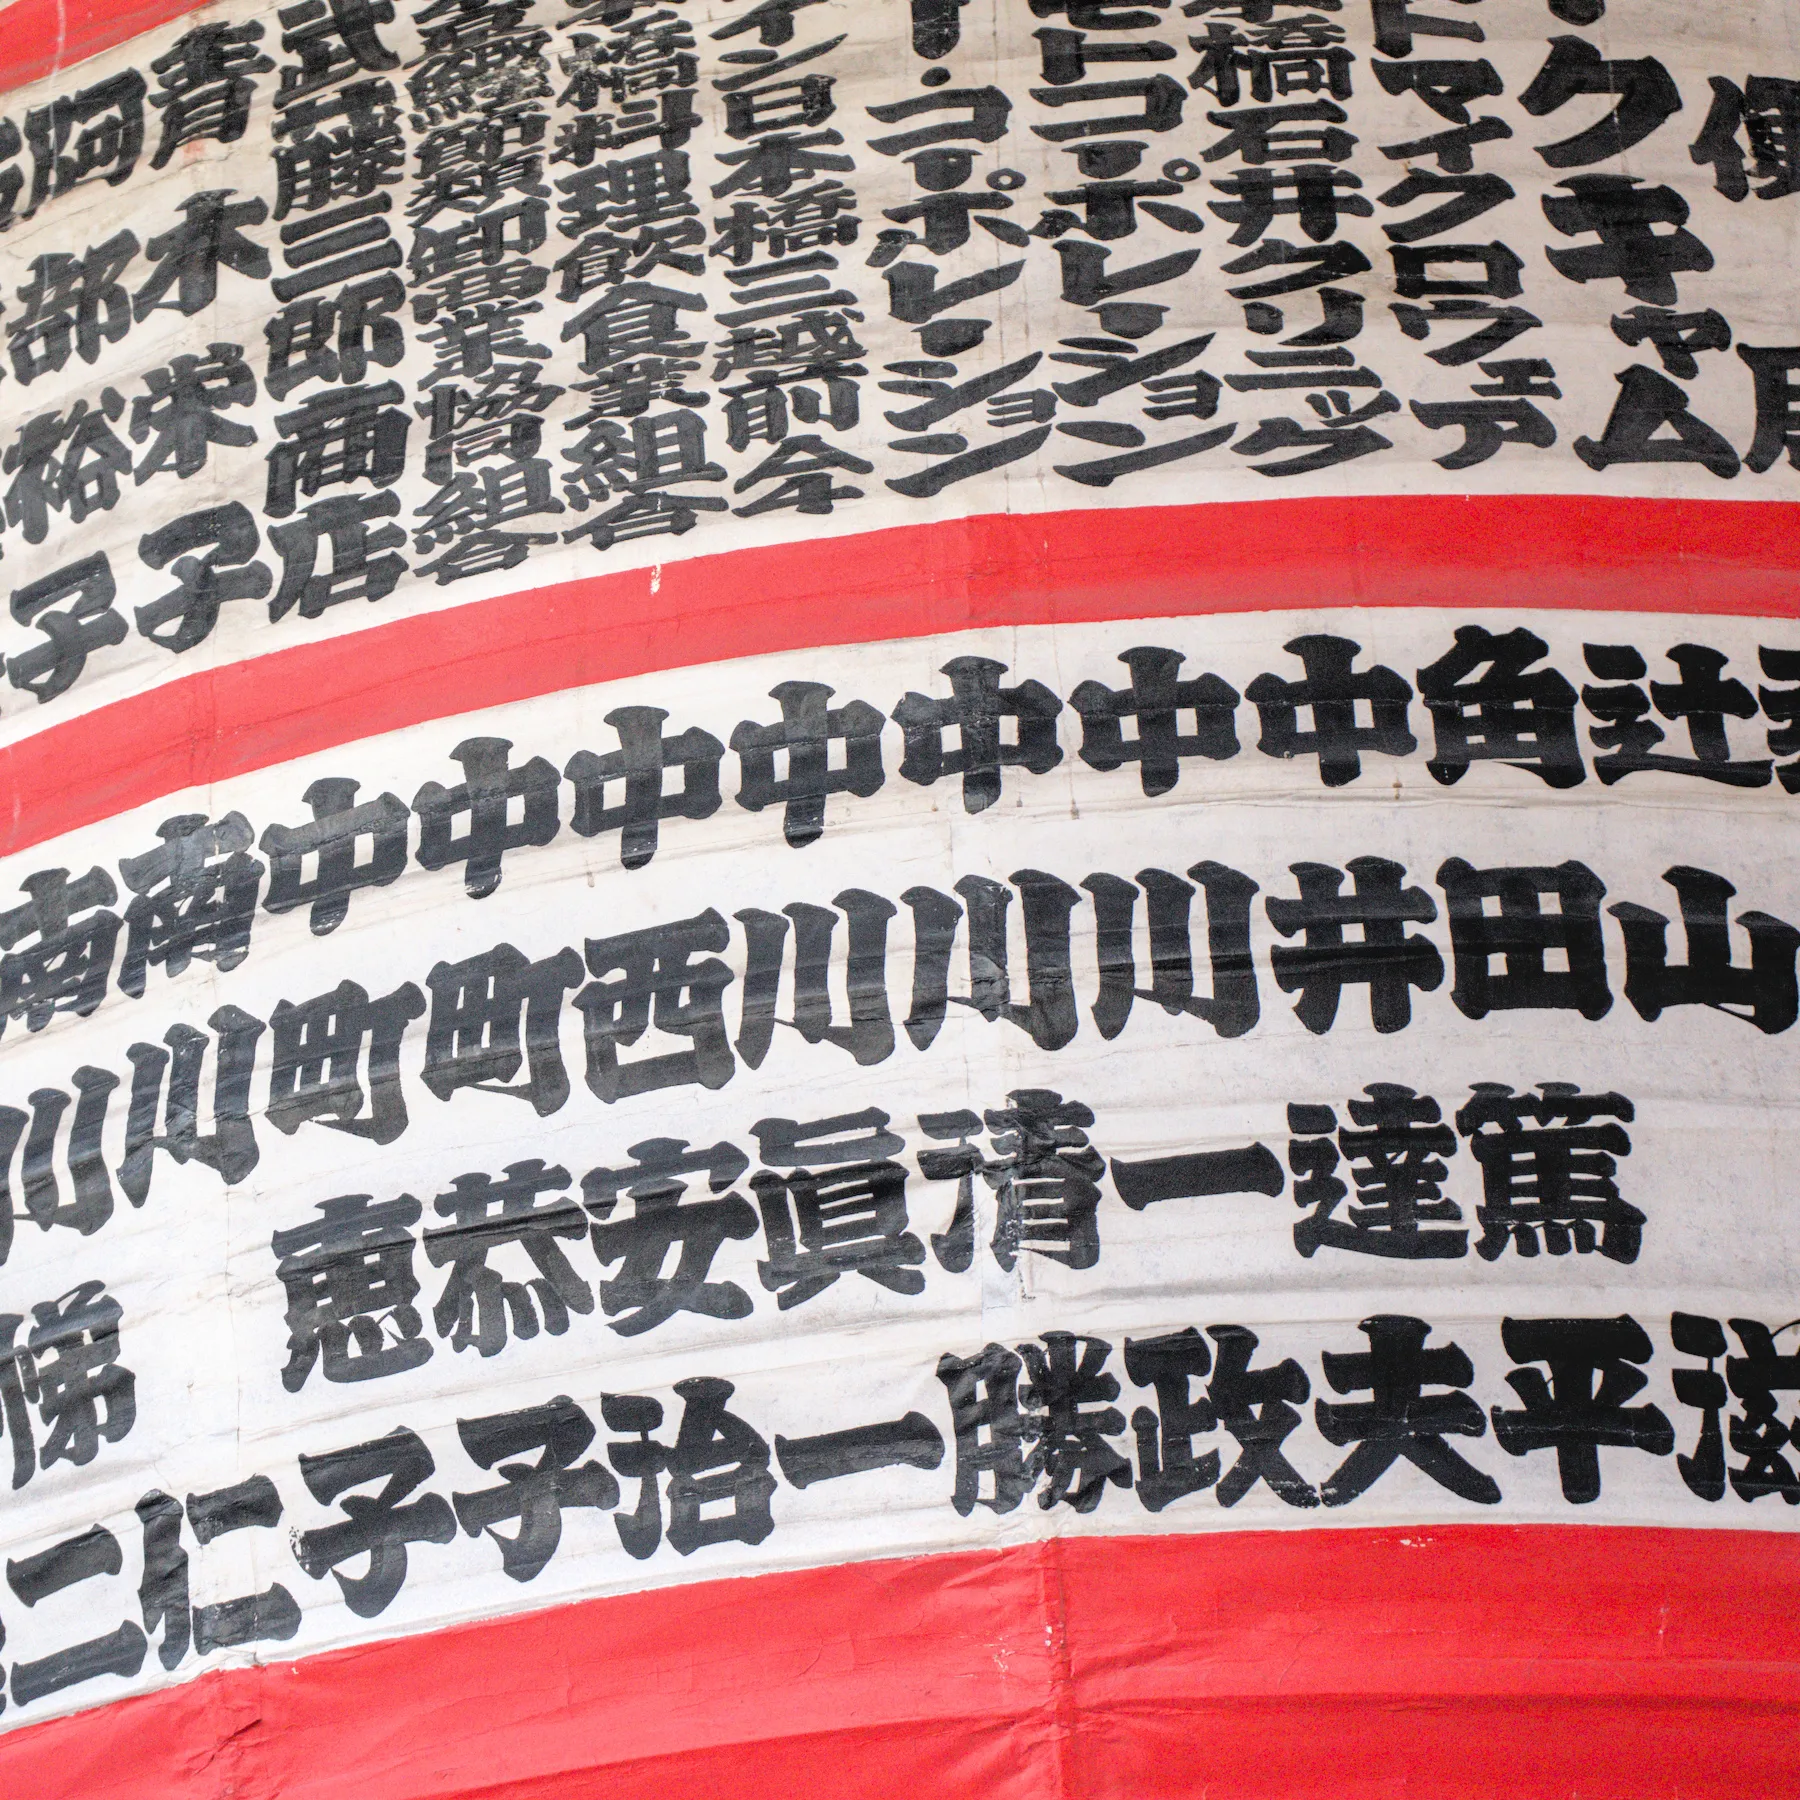 クキャム
ドマイクロウェア
橋石井クリニック
モトコーポレーション
ー・コーポレーション
イン日本橋三越前
橋料理飲食業組合
鰹節類卸商業協同組合
武藤三郎商店
青木栄子
阿部裕子
辻山滋
角田篤平
中井達夫
中川一政
中川清勝
中川眞一
中西安治
中町恭子
中町惠子
南川仁
南川悌二